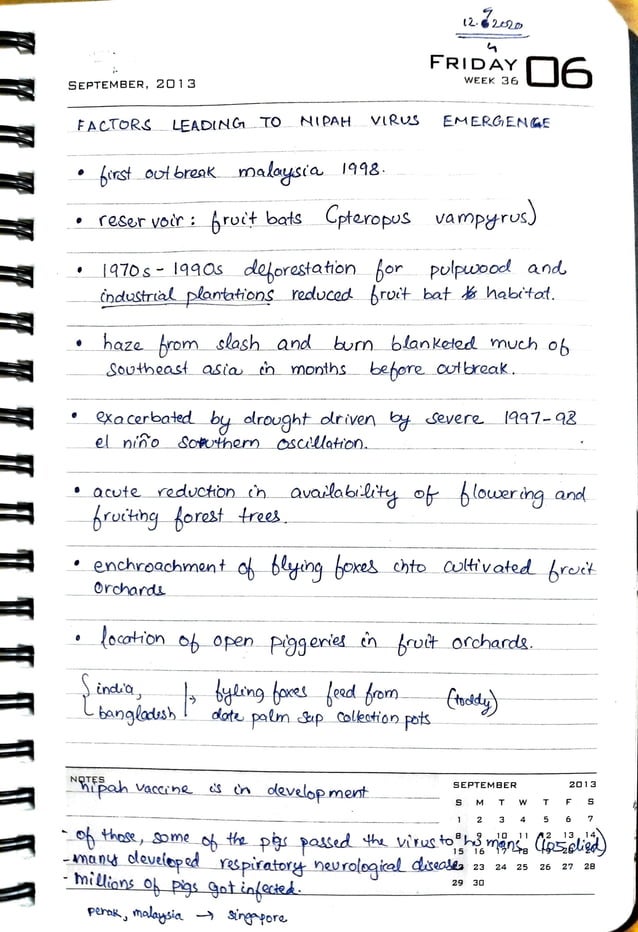 7
12.6.2020
SEPTEMBER, 2013
FRIDAY 06
WEEK 36
FACTORS LEADING TO NIPAH VIRUS EMERGENCE
• first outbreak malaysia 1998.
• reservoir: fruit bats (pteropus vampyrus)
• 1970s - 1990s deforestation for pulpwood and
industrial plantations reduced fruit bat habitat.
• haze from slash and burn blanketed much of
southeast asia in months before outbreak.
• exacerbated by drought driven by severe 1997-98
el niño southern oscillation.
• acute reduction in availability of flowering and
fruiting forest trees.
• enchroachment of flying foxes into cultivated fruit
orchards
• location of open piggeries in fruit orchards.
india, fyling foxes feed from (toddy)
bangladesh date palm sap collection pots
NOTES
nipah vaccine is in development
- of those, some of the pigs passed the virus to humans (105 died)
- many developed respiratory neurological disease
- millions of pigs got infected.
perak, malaysia → singapore
SEPTEMBER 2013
S M T W T F S
1 2 3 4 5 6 7
8 9 10 11 12 13 14
15 16 17 18 19 20 21
22 23 24 25 26 27 28
29 30